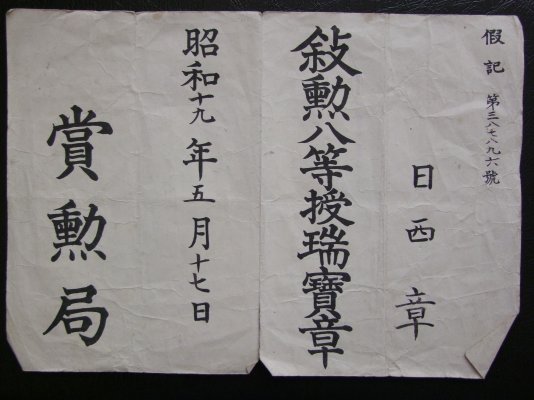 假記 第三八七八九六號
日西 章
敍勲八等授瑞寶章
昭和十九年五月十七日
賞勲局